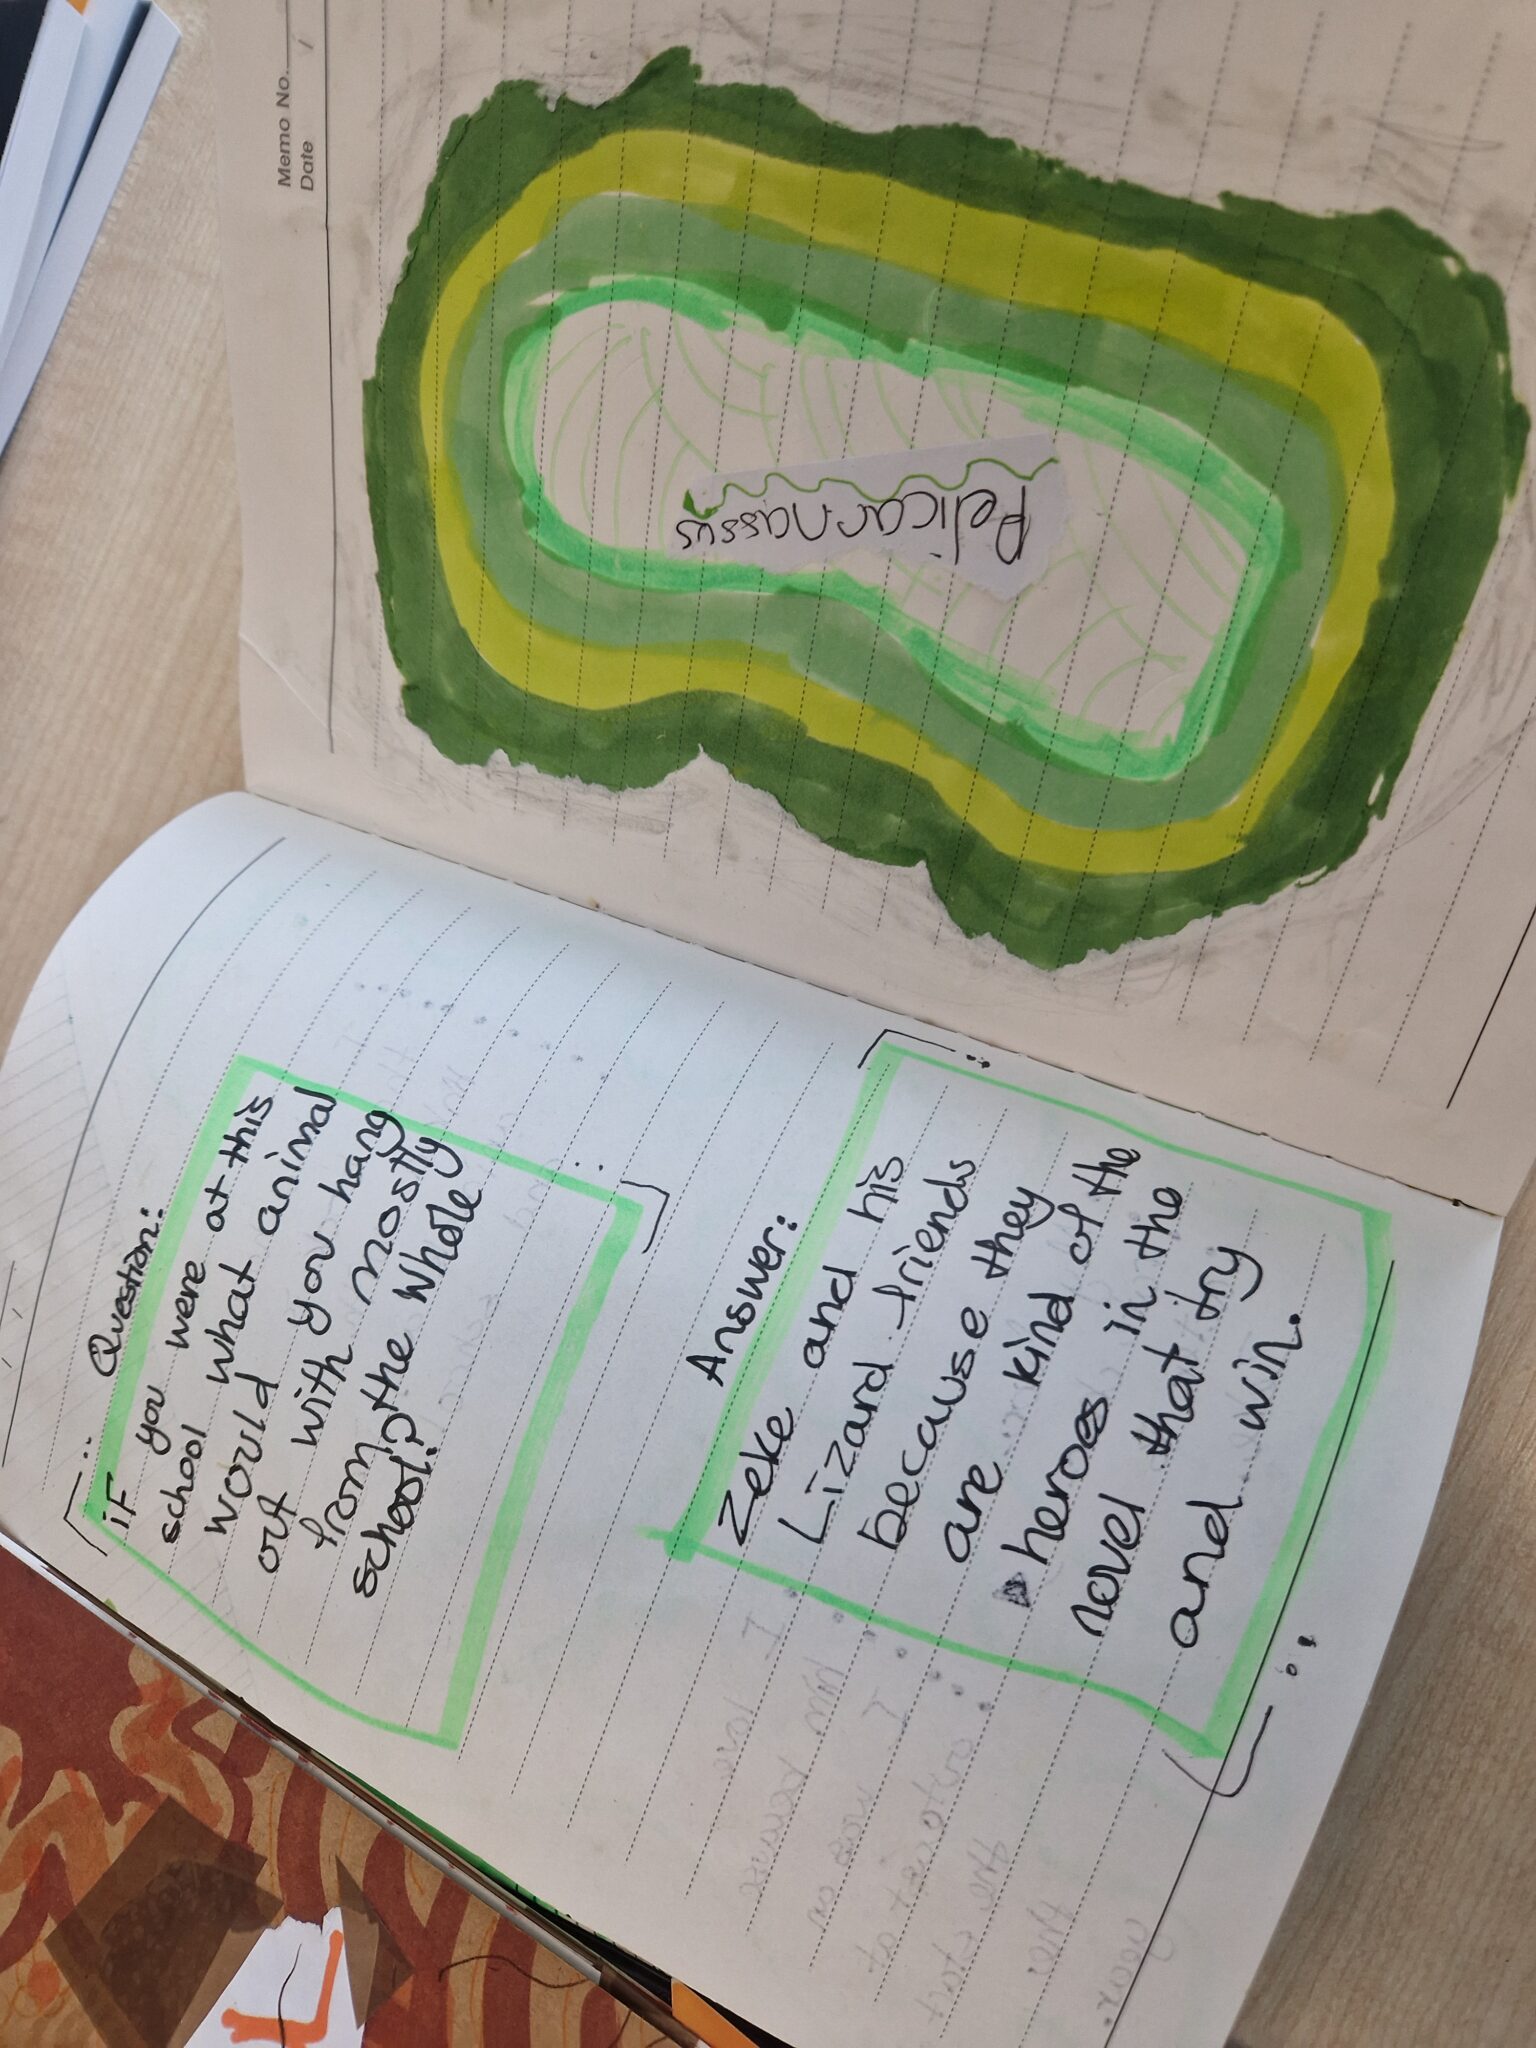 Memo No.
Date
Pelicarnassus
Question:
iF you were at this
school what animal
would you hang
out with mostly
from the whole
school?
Answer:
Zeke and his
Lizard friends
because they
are kind of the
heroes in the
novel that try
and win.